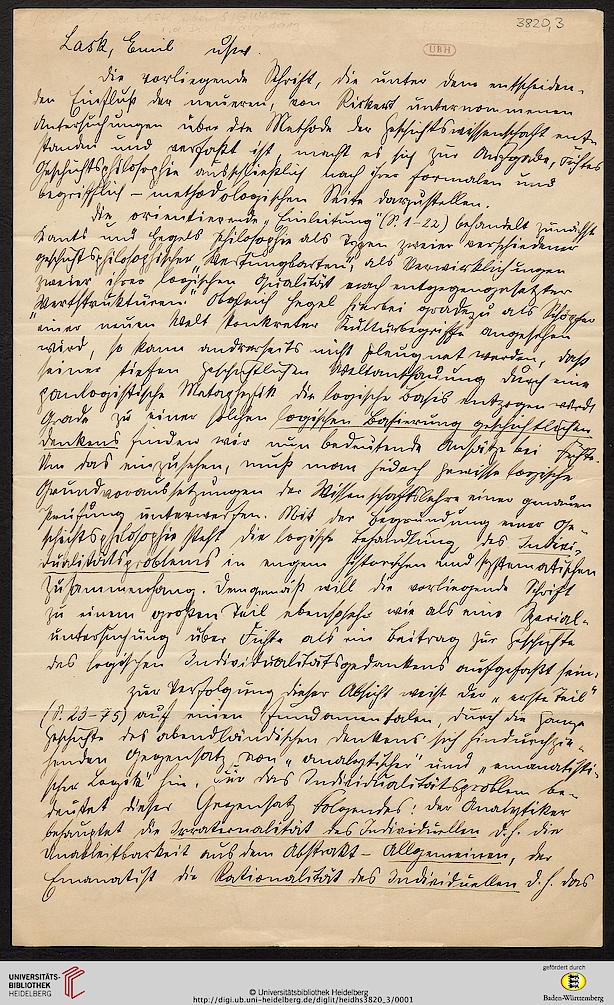 3820,3
Lask, Emil usw.
UBH
Die vorliegende Schrift, die unter dem entscheiden-
den Einfluß der neueren, von Rickert unternommenen
Untersuchungen über die Methode der Geschichtswissenschaft ent-
standen und verfaßt ist, macht es sich zur Aufgabe, Fichtes
Geschichtsphilosophie ausschließlich nach ihrer formalen und
begrifflich-methodologischen Seite darzustellen.
Die orientierende „Einleitung" (S. 1-22) behandelt zunächst
Kants und Hegels Philosophie als Typen zweier verschiedener
geschichtsphilosophischer „Wertungsarten", als Verwirklichungen
zweier ihrer logischen Qualität nach entgegengesetzter
„Wertstrukturen". Obgleich Hegel hierbei gradezu als Schöpfer
einer neuen Welt konkreter Kulturbegriffe angesehen
wird, so kann andrerseits nicht geleugnet werden, daß
seiner tiefen geschichtlichen Weltanschauung durch eine
panlogistische Metaphysik die logische Basis entzogen wird.
Grade zu einer solchen logischen Basierung geschichtlichen
Denkens finden wir nun bedeutende Ansätze bei Fichte.
Um das einzusehen, muß man jedoch gewisse logische
Grundvoraussetzungen der Wissenschaftslehre einer genauen
Prüfung unterwerfen. Mit der Begründung einer Ge-
schichtsphilosophie steht die logische Behandlung des Indivi-
dualitätsproblems in engem historischen und systematischen
Zusammenhang. Demgemäß will die vorliegende Schrift
zu einem großen Teil ebensosehr wie als eine Spezial-
untersuchung über Fichte als ein Beitrag zur Geschichte
des logischen Individualitätsgedankens aufgefaßt sein.
Zur Verfolgung dieser Absicht weist der „erste Teil"
(S. 23-75) auf einen fundamentalen, durch die ganze
Geschichte des abendländischen Denkens sich hindurchzie-
henden Gegensatz von „analytischer" und „emanatisti-
scher Logik" hin. Für das Individualitätsproblem be-
deutet dieser Gegensatz folgendes: der Analytiker
behauptet die Irrationalität des Individuellen d.h. die
Unableitbarkeit aus dem Abstrakt-Allgemeinen, der
Emanatist die Rationalität des Individuellen d.h. das
UNIVERSITÄTS-
BIBLIOTHEK
HEIDELBERG
© Universitätsbibliothek Heidelberg
http://digi.ub.uni-heidelberg.de/diglit/heidhs3820_3/0001
gefördert durch
Baden-Württemberg